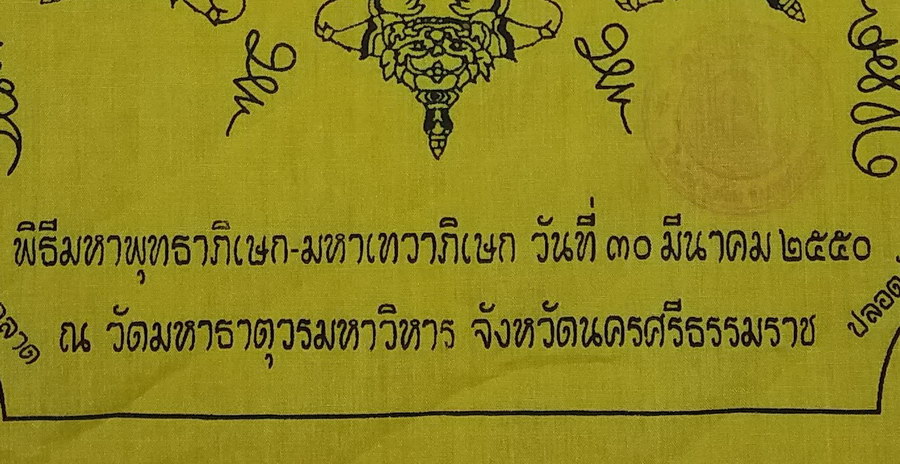 พิธีมหาพุทธาภิเษก-มหาเทวาภิเษก วันที่ ๓๐ มีนาคม ๒๕๕๐
ณ วัดมหาธาตุวรมหาวิหาร จังหวัดนครศรีธรรมราช
ปลอด